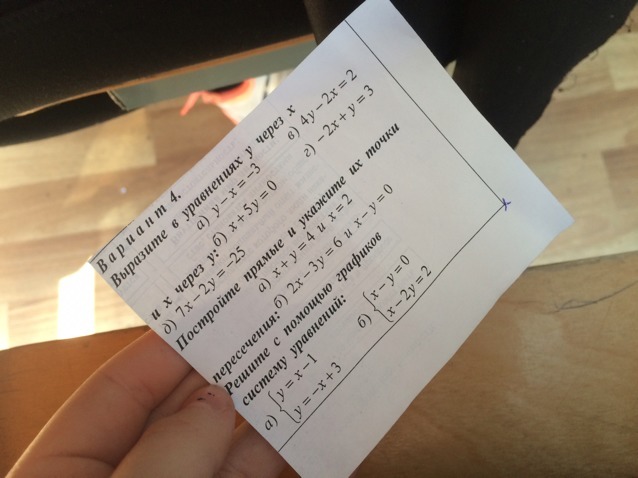 Вариант 4.
Выразите в уравнениях y через x
и x через y:
а) y − x = −3
в) 4y − 2x = 2
б) x + 5y = 0
г) −2x + y = 3
д) 7x − 2y = −25
Постройте прямые и укажите их точки
пересечения:
а) x + y = 4 и x = 2
б) 2x − 3y = 6 и x − y = 0
Решите с помощью графиков
систему уравнений:
а) { y = x − 1
y = −x + 3
б) { x − y = 0
x − 2y = 2